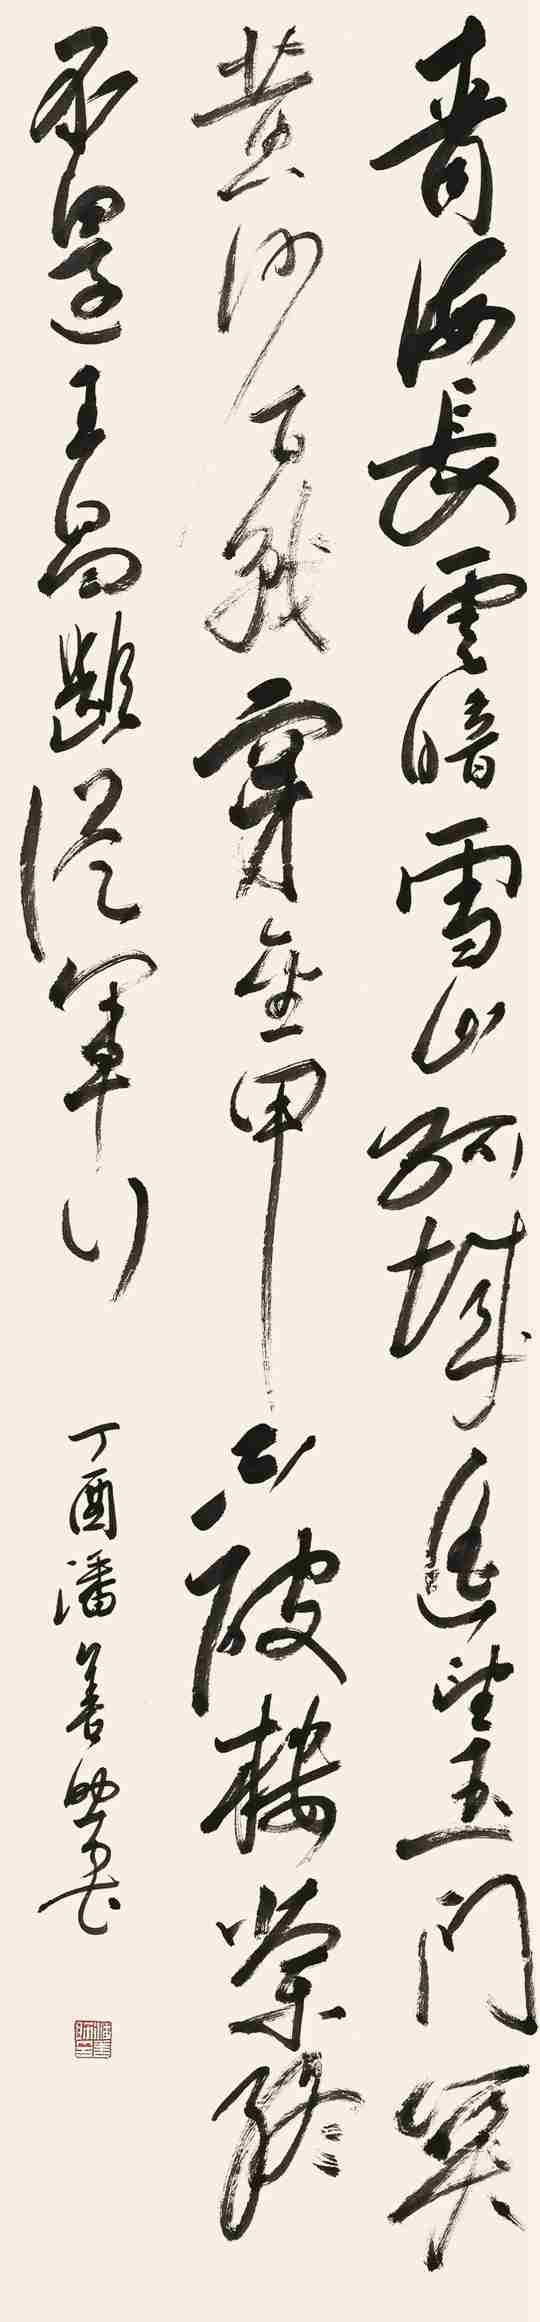 青海長雲暗雪山孤城遥望玉門関
黄沙百戰穿金甲不破楼蘭終
不還王昌齡從軍行
丁酉潘善助書